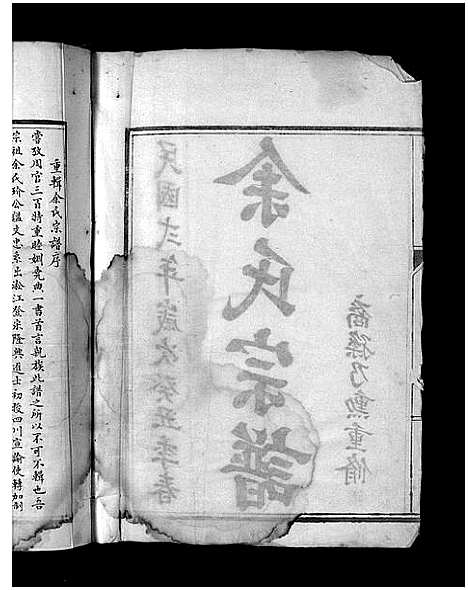 裔孫乃勲重脩
余氏宗譜
民國弍年歲次癸丑季春
重輯余氏宗譜序
嘗攷周官三百特重睦婣堯典一書首言親族此譜之所以不可不輯也吾
宗祖余氏玠公諡文忠系出淞江登宋隆興進士初授四川宣諭使轉加制